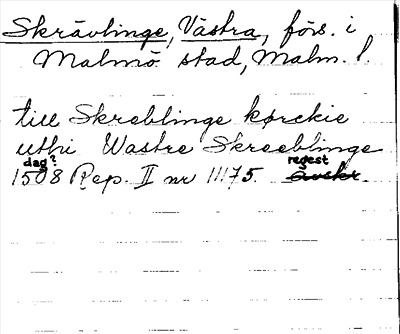 Skrävlinge, Västra, förs. i
Malmö stad, Malm. l.
till Skreblinge kørckie
uthi Wastre Skreeblinge
dag? regest
1508 Rep. II nr 11175. Avskr.